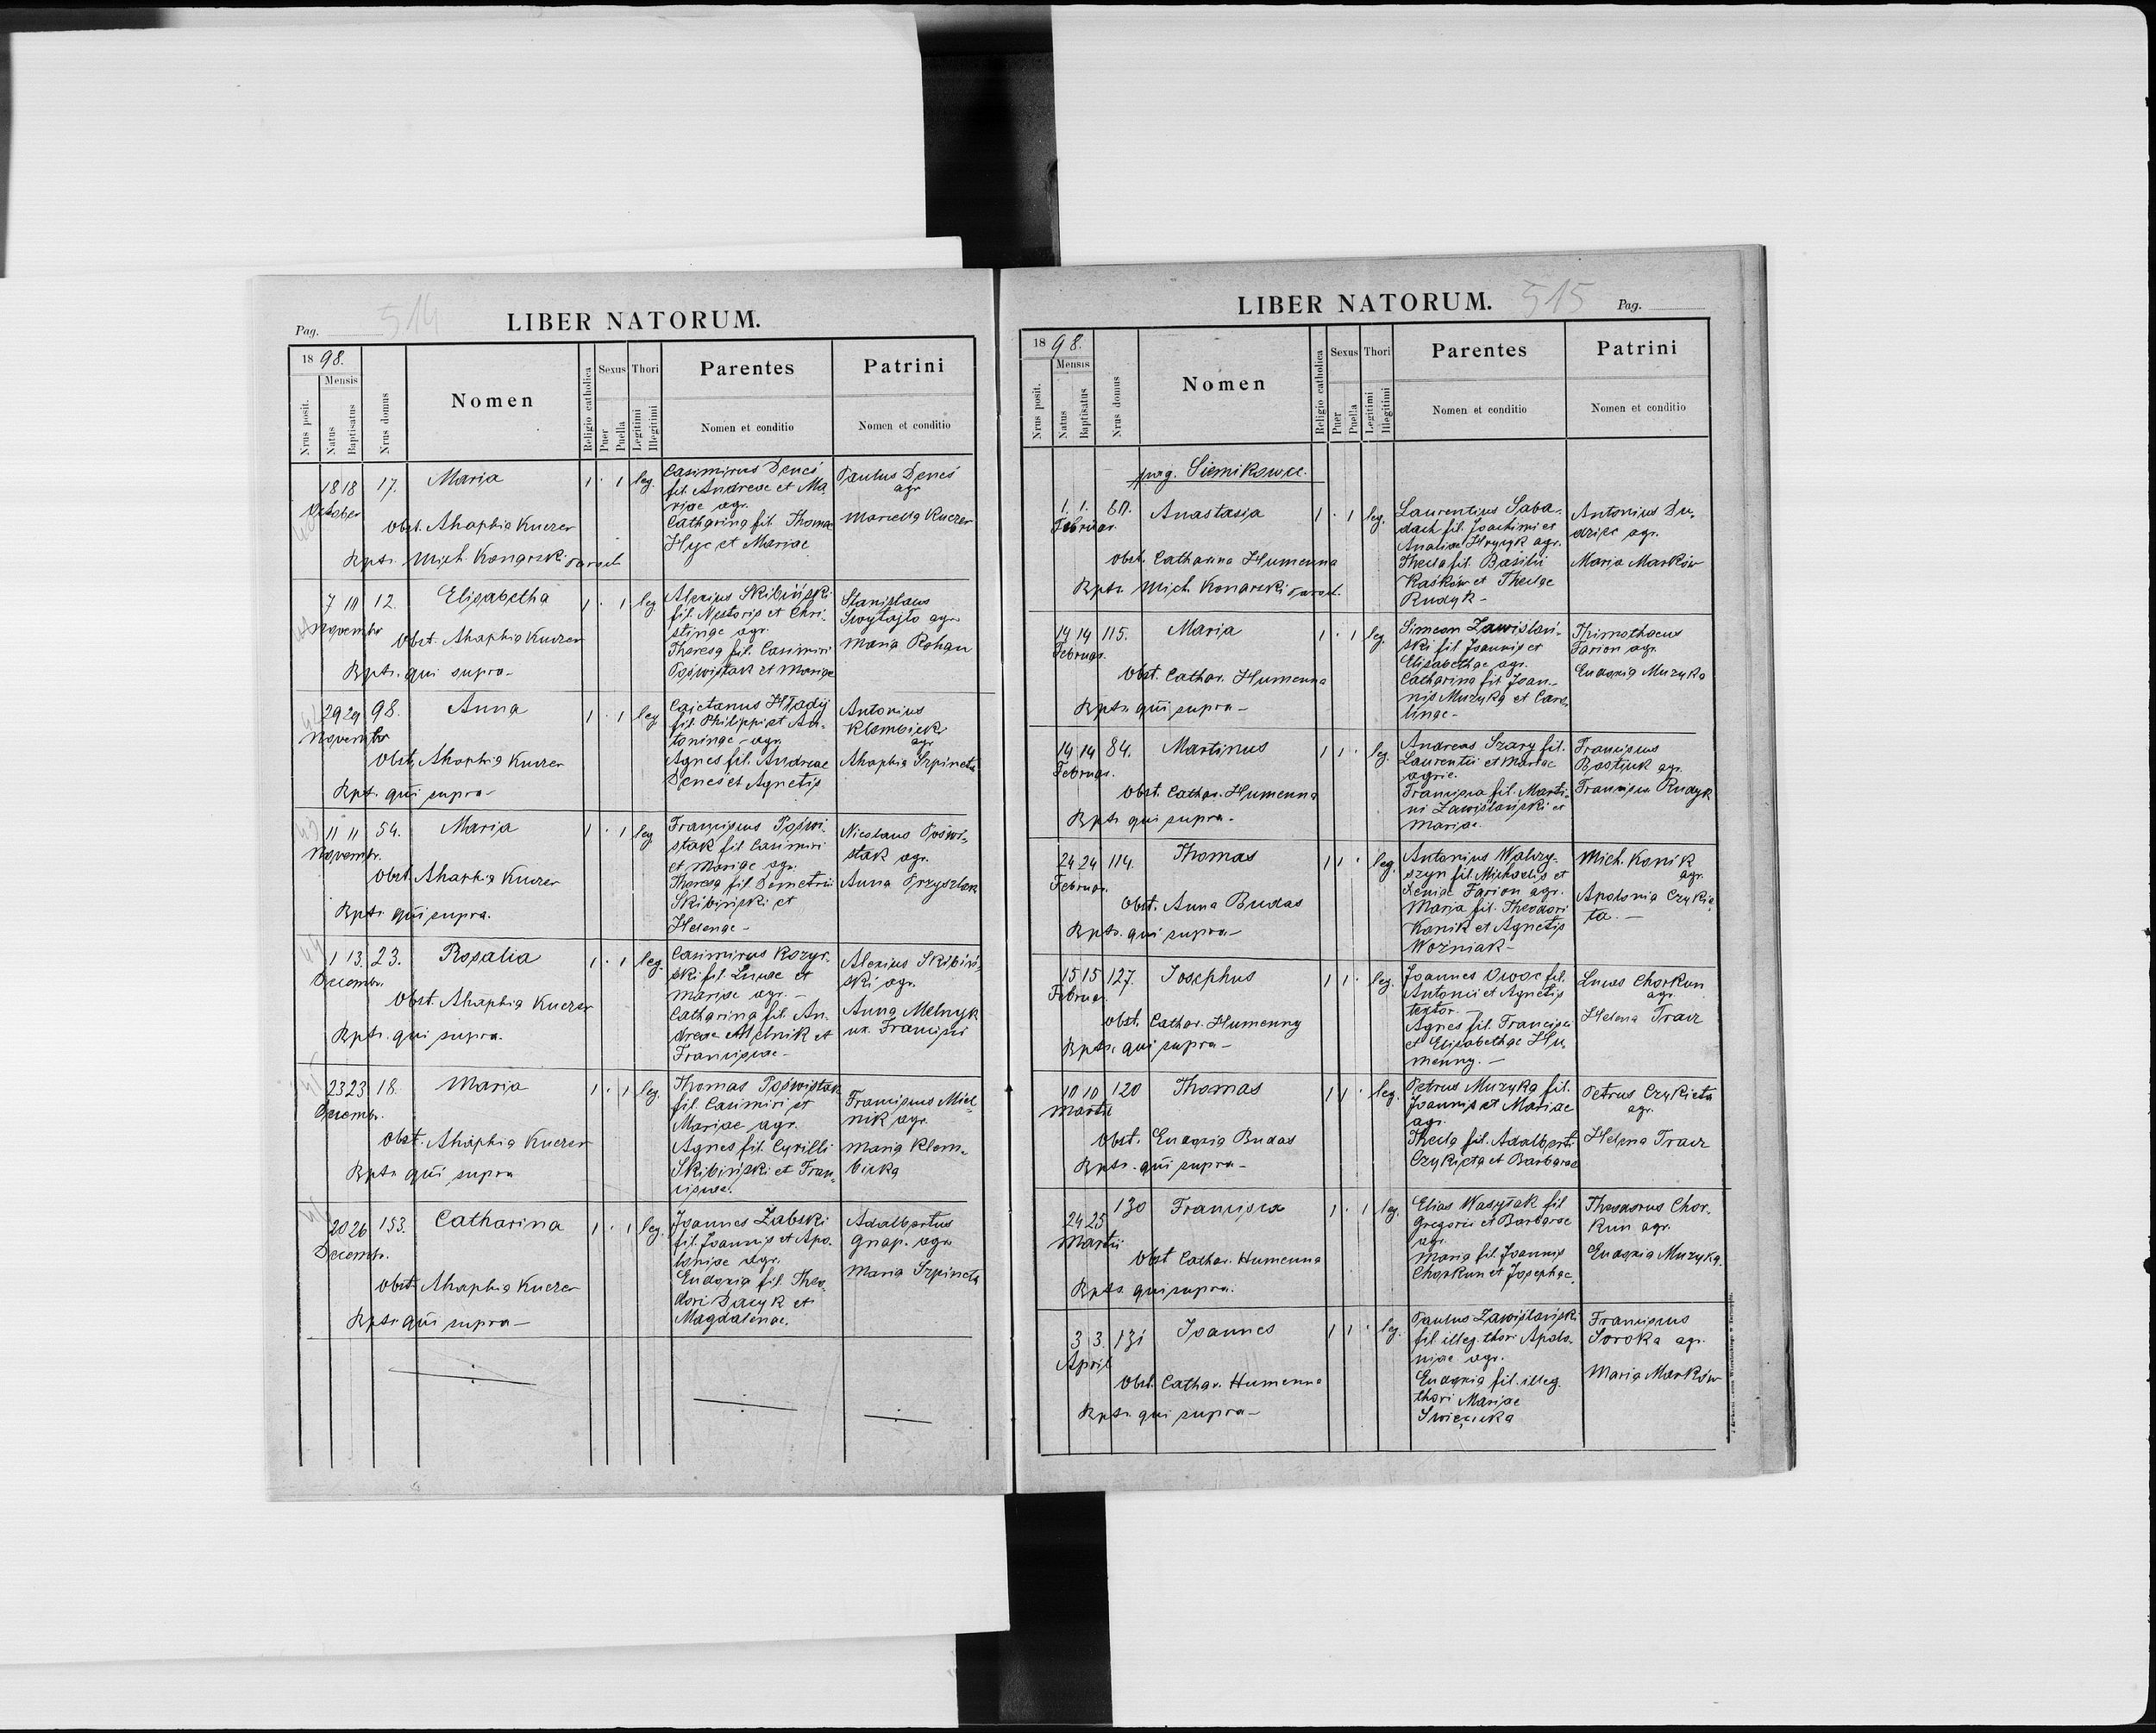 Pag. 514
LIBER NATORUM.
1898.
Nrus posit.
Mensis
Natus
Baptisatus
Nrus domus
Nomen
Religio catholica
Sexus
Puer
Puella
Thori
Legitimi
Illegitimi
Parentes
Nomen et conditio
Patrini
Nomen et conditio
18 18 17. Maria 1 · 1 leg.
October
Obst. Ahaphia Kuczer
Bpts. Mich. Konarski Paroch
Casimirus Deneś
fil. Andreae et Ma-
riae agr.
Catharina fil. Thomae
Hyc et Mariae
Paulus Deneś
agr
Marcella Kuczer
7 10 12. Elisabetha 1 · 1 leg.
Novembr
Obst. Ahaphia Kuczer
Bpts. qui supra-
Alexius Skibiński
fil. Nestoris et Chri-
stinae agr.
Theresa fil. Casimiri
Poświstak et Mariae
Stanislaus
agr
Maria Rohan
29 29 98. Anna 1 · 1 leg
Novembr
Obst. Ahaphia Kuczer
Bpt. qui supra-
Cajetanus Hładij
fil. Philippi et An-
toninae - agr.
Agnes fil. Andreae
Deneś et Agnetis
Antonius
Klembick
agr
Ahaphia Szpineta
11 11 54. Maria 1 · 1 leg
Novembr.
Obst. Ahaphia Kuczer
Bpts. qui supra.
Franciscus Poświ-
stak fil. Casimiri
et Mariae agr.
Theresa fil. Demetrii
Skibiński et
Helenae -
Nicolaus Poświ-
stak agr.
Anna Przyszlak
1 13. 23. Rosalia 1 · 1 leg.
Decembr.
Obst. Ahaphia Kuczer
Bpts. qui supra.
Casimirus Kozyr-
ski fil. Lucae et
Mariae agr. -
Catharina fil. An-
dreae Melnik et
Franciscae -
Alexius Skibiń-
ski agr.
Anna Melnyk
ux. Francisci
23 23 18. Maria 1 · 1 leg.
Decembr.
Obst. Ahaphia Kuczer
Bpts. qui supra
Thomas Poświstak
fil. Casimiri et
Mariae agr.
Agnes fil. Cyrilli
Skibiński et Fran-
ciscae.
Franciscus Miel-
nik agr.
Maria Klem-
bicka
20 26 153. Catharina 1 · 1 leg.
Decembr.
Obst. Ahaphia Kuczer
Bpts. qui supra -
Joannes Żabski
fil. Joannis et Apo-
loniae agr.
Eudoxia fil. Theo-
dori Dacyk et
Magdalenae.
Adalbertus
Gnap. agr
Maria Szpineta
LIBER NATORUM.
515 Pag.
1898.
Nrus posit.
Mensis
Natus
Baptisatus
Nrus domus
Nomen
Religio catholica
Sexus
Puer
Puella
Thori
Legitimi
Illegitimi
Parentes
Nomen et conditio
Patrini
Nomen et conditio
pag. Siemikowce.
1. 1. 80. Anastasia 1 · 1 leg.
Februar.
Obst. Catharina Humenna
Bpts. Mich Konarski Paroch.
Laurentius Saba-
dach fil. Joachimi et
Hrycyk agr.
Thecla fil. Basilii
Kaśków et Theclae
Rudyk -
Antonius Du-
dziec agr.
Maria Marków
14 14 115. Maria 1 · 1 leg.
Februar.
Obst. Cathar. Humenna
Bpts. qui supra -
Simeon Zawislań-
ski fil Joannis et
Elisabethae agr.
Catharina fil Joan-
nis Muzyka et Caro-
linae -
Thimotheus
Farion agr.
Eudoxia Muzyka
14 14 84. Martinus 1 1 · leg.
Februar.
Obst. Cathar. Humenna
Bpts qui supra.
Andreas Szary fil.
Laurentii et Mariae
agric.
Francisca fil. Marti-
ni Zawislański et
Mariae.
Franciscus
Bastiuk agr.
Francisca Rudyk
24 24 114. Thomas 1 1 · leg.
Februar.
Obst. Anna Budas
Bpts. qui supra -
Antonius Walczy-
szyn fil. Michaelis et
Xeniae Farion agr.
Maria fil. Theodori
Konik et Agnetis
Woźniak -
Mich. Konik
agr.
Apolonia Czykie-
ta. -
15 15 127. Josephus 1 1 · leg.
Februar.
Obst. Cathar. Humenny
Bpts. qui supra -
Joannes Owoc fil.
Antonii et Agnetis
textor. -
Agnes fil. Francisci
et Elisabethae Hu-
menny. -
Lucas Chorkun
agr.
Helena Tracz
10 10 120 Thomas 1 1 · leg.
Martii
Obst. Eudoxia Budas
Bpts. qui supra -
Petrus Muzyka fil.
Joannis et Mariae
agr.
Thecla fil. Adalberti
Czykieta et Barbarae
Petrus Czykieta
agr.
Helena Tracz
24 25 130 Francisca 1 · 1 leg.
Martii
Obst Cathar. Humenna
Bpts. qui supra.
Elias Wasylak fil
Gregorii et Barbarae
agr.
Maria fil. Joannis
Chorkun et Josephae.
Theodorus Chor-
kun agr.
Eudoxia Muzyka.
3 3. 131 Joannes 1 1 · leg.
April
Obst. Cathar. Humenna
Bpts. qui supra -
Paulus Zawislański
fil. illeg. thori Apolo-
niae agr.
Eudoxia fil. illeg.
thori Mariae
Swięcicka
Franciscus
Soroka agr.
Maria Marków